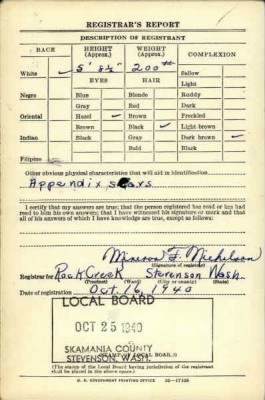 REGISTRAR'S REPORT
DESCRIPTION OF REGISTRANT
RACE HEIGHT (Approx.) WEIGHT (Approx.) COMPLEXION
White ✓ 5' 8½" 200## Sallow
EYES HAIR Light
Negro Blue Blonde Ruddy
Gray Red Dark
Oriental Hazel ✓ Brown Freckled
Brown Black ✓ Light brown
Indian Black Gray Dark brown ✓
Bald Black
Filipino
Other obvious physical characteristics that will aid in identification
Appendix scars
I certify that my answers are true; that the person registered has read or has had
read to him his own answers; that I have witnessed his signature or mark and that
all of his answers of which I have knowledge are true, except as follows:
F. Nichelson
(Signature of registrar)
Registrar for Rock Creek Stevenson Wash.
(Precinct) (Ward) (City or county) (State)
Date of registration Oct. 16, 1940
LOCAL BOARD
OCT 25 1940
SKAMANIA COUNTY
STEVENSON, WASH.
(STAMP OF LOCAL BOARD.)
(The stamp of the Local Board having jurisdiction of the registrant
shall be placed in the above space.)
U. S. GOVERNMENT PRINTING OFFICE 16—17105